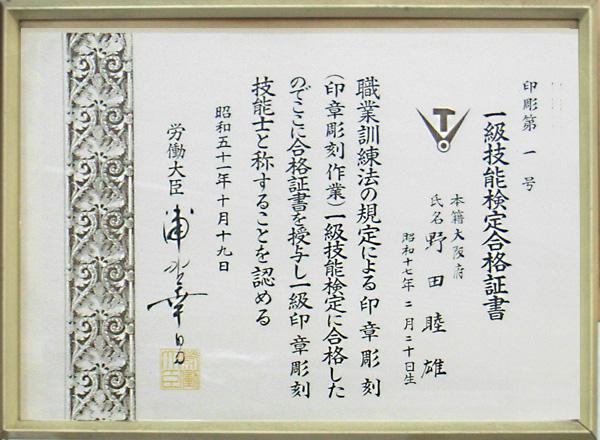 印彫第一号
一級技能検定合格証書
本籍 大阪府
氏名 野田睦雄
昭和十七年二月二十日生
職業訓練法の規定による印章彫刻
（印章彫刻作業）一級技能検定に合格した
のでここに合格証書を授与し一級印章彫刻
技能士と称することを認める
昭和五十一年十月十九日
労働大臣 浦野幸男